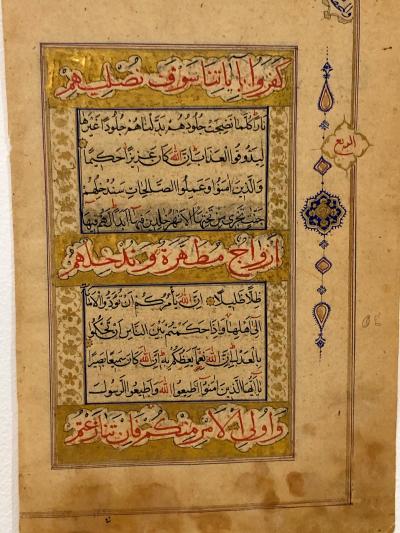 كَفَرُوا بِآيَاتِنَا سَوْفَ نُصْلِيهِمْ
نَارًا كُلَّمَا نَضِجَتْ جُلُودُهُمْ بَدَّلْنَاهُمْ جُلُودًا غَيْرَهَا
لِيَذُوقُوا الْعَذَابَ إِنَّ اللهَ كَانَ عَزِيزًا حَكِيمًا
وَالَّذِينَ آمَنُوا وَعَمِلُوا الصَّالِحَاتِ سَنُدْخِلُهُمْ
جَنَّاتٍ تَجْرِي مِنْ تَحْتِهَا الْأَنْهَارُ خَالِدِينَ فِيهَا أَبَدًا لَهُمْ فِيهَا
أَزْوَاجٌ مُطَهَّرَةٌ وَنُدْخِلُهُمْ
ظِلًّا ظَلِيلًا إِنَّ اللهَ يَأْمُرُكُمْ أَنْ تُؤَدُّوا الْأَمَانَاتِ
إِلَى أَهْلِهَا وَإِذَا حَكَمْتُمْ بَيْنَ النَّاسِ أَنْ تَحْكُمُوا
بِالْعَدْلِ إِنَّ اللهَ نِعِمَّا يَعِظُكُمْ بِهِ إِنَّ اللهَ كَانَ سَمِيعًا بَصِيرًا
يَا أَيُّهَا الَّذِينَ آمَنُوا أَطِيعُوا اللهَ وَأَطِيعُوا الرَّسُولَ
وَأُولِي الْأَمْرِ مِنْكُمْ فَإِنْ تَنَازَعْتُمْ
الربع